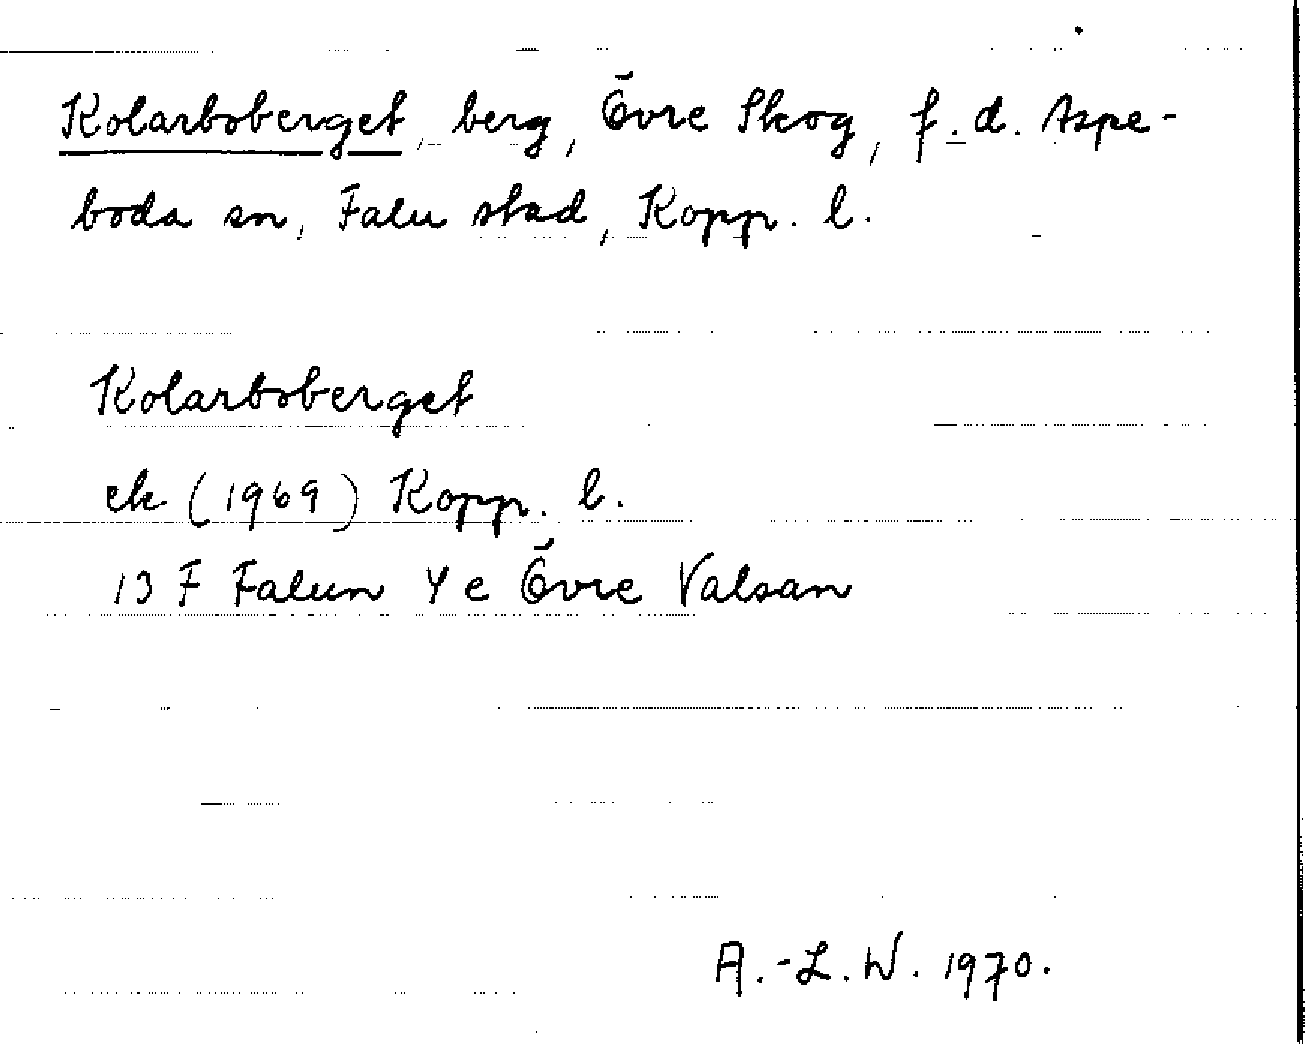 Kolarboberget, berg, Övre Skog, f.d. Aspe-
boda sn, Falu stad, Kopp. l.
Kolarboberget
ek (1969) Kopp. l.
13 F Falun 4 e Övre Valsan
A.-L.W. 1970.